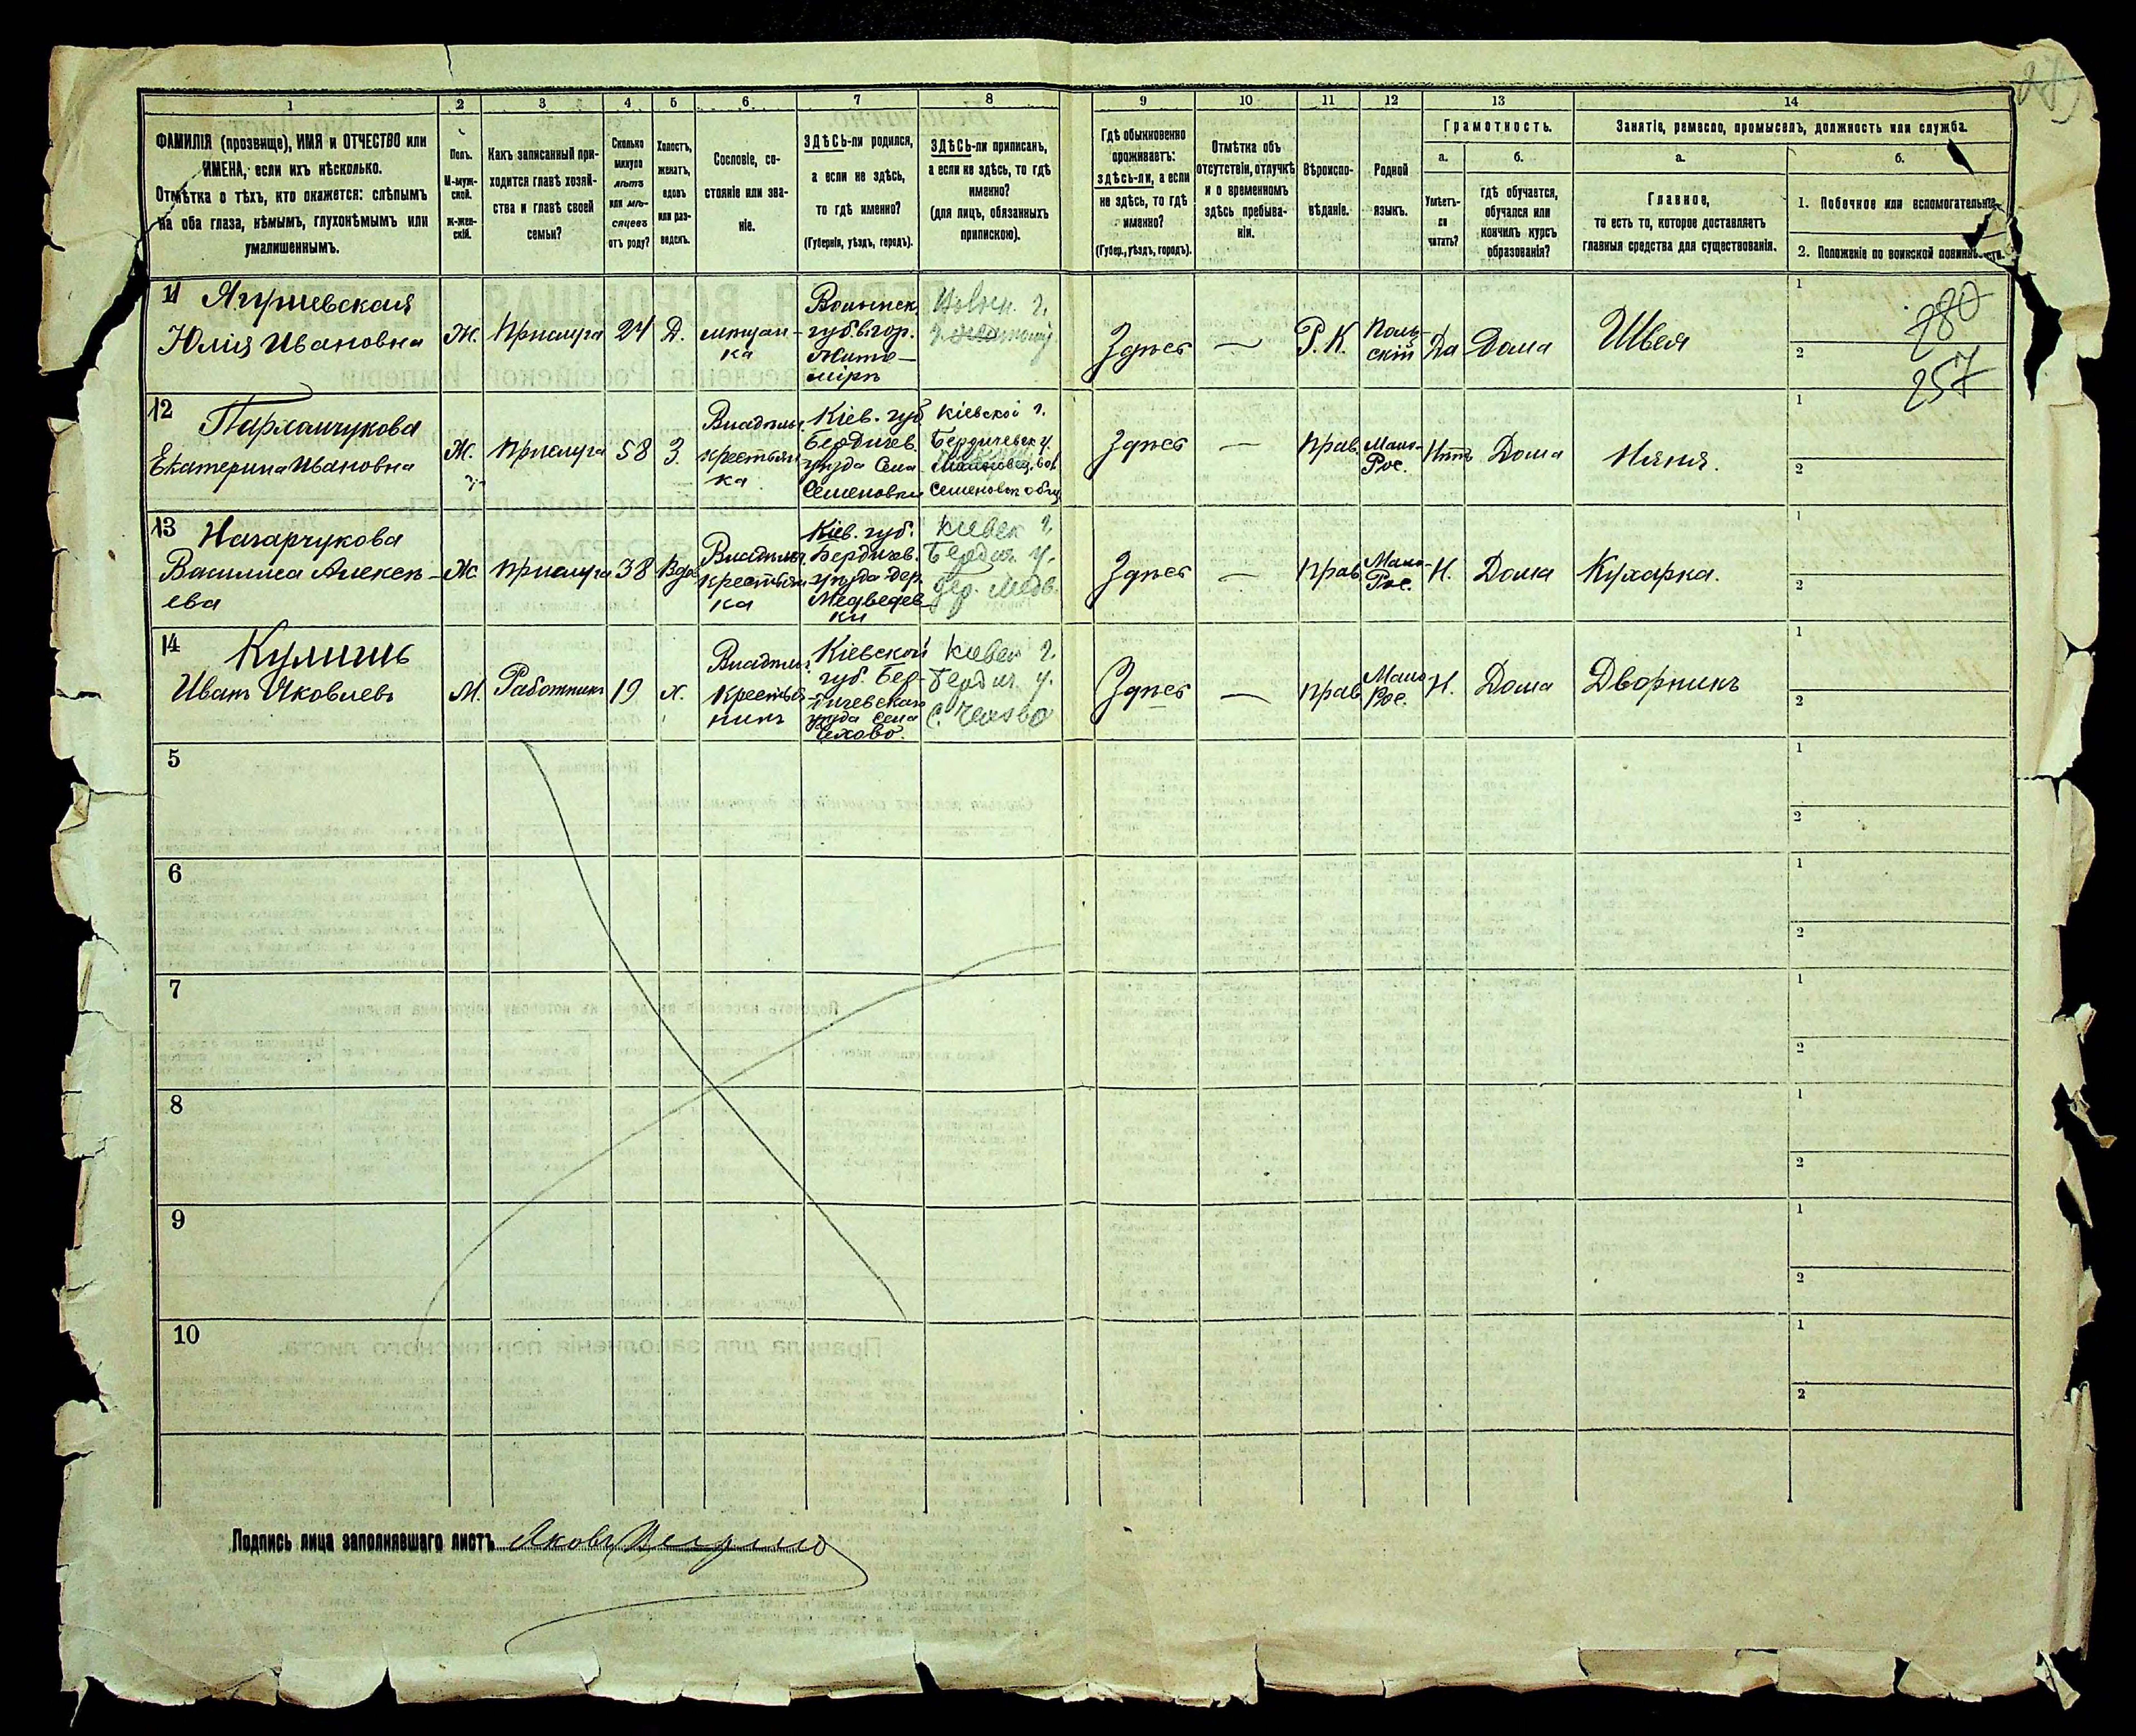 1
2
3
4
5
6
7
8
9
10
11
12
13
14
ФАМИЛІЯ (прозвище), ИМЯ и ОТЧЕСТВО или
ИМЕНА, если ихъ нѣсколько.
Отмѣтка о тѣхъ, кто окажется: слѣпымъ
на оба глаза, нѣмымъ, глухонѣмымъ или
умалишеннымъ.
Полъ.
М-муж-
ской.
ж-жен-
скій.
Какъ записанный при-
ходится главѣ хозяй-
ства и главѣ своей
семьи?
Сколько
минуло
лѣтъ
или мѣ-
сяцевъ
отъ роду?
Холостъ,
женатъ,
вдовъ
или раз-
веденъ.
Сословіе, со-
стояніе или зва-
ніе.
ЗДѢСЬ-ли родился,
а если не здѣсь,
то гдѣ именно?
(Губернія, уѣздъ, городъ).
ЗДѢСЬ-ли приписанъ,
а если не здѣсь, то гдѣ
именно?
(для лицъ, обязанныхъ
припискою).
Гдѣ обыкновенно
проживаетъ:
здѣсь-ли, а если
не здѣсь, то гдѣ
именно?
(Губер., уѣздъ, городъ).
Отмѣтка объ
отсутствіи, отлучкѣ
и о временномъ
здѣсь пребыва-
ніи.
Вѣроиспо-
вѣданіе.
Родной
языкъ.
Грамотность.
а.
Умѣетъ-
ли
читать?
б.
гдѣ обучается,
обучался или
кончилъ курсъ
образованія?
Занятіе, ремесло, промыселъ, должность или служба.
а.
Главное,
то есть то, которое доставляетъ
главныя средства для существованія.
б.
1. Побочное или вспомогательное.
2. Положеніе по воинской повинности.
11
Ягушевская
Юлія Ивановна
Ж.
Прислуга
24
Д.
мещан-
ка
Волынск.
губ. гор.
Жито-
міръ
Волын. г.
Здѣсь
—
Р. К.
Поль-
скій
Да
Дома
Швея
1
2
280
257
12
Пархамчукова
Екатерина Ивановна
Ж.
Прислуга
58
З.
крестьян-
ка
Кіев. губ
Бердичев.
уѣзда Села
Семеновки
Кіевской г.
Бердичевск у.
Семеновск общ
Здѣсь
—
Прав.
Мало-
Рос.
Нѣтъ
Дома
Няня.
1
2
13
Назарчукова
Василиса Алексѣ-
ева
Ж.
Прислуга
38
Вдов
крестьян
ка
Кіев. губ.
Бердичев.
уѣзда дер.
Медведев
ки
Киевск г.
Бердич. у.
дер. Медв.
Здѣсь
—
Прав
Мало-
Рос.
Н.
Дома
Кухарка.
1
2
14
Кулишъ
Иванъ Яковлевъ
М.
Работникъ
19
х.
Крестья
нинъ
Кіевской
губ. Бер-
дичевскаго
уѣзда села
Чехово.
Киевск г.
Бердич. у.
с. Чехово
Здѣсь
—
Прав
Мало
Рос.
Н.
Дома
Дворникъ
1
2
5
1
2
6
1
2
7
1
2
8
1
2
9
1
2
10
1
2
Подпись лица заполнявшаго листъ Яковъ